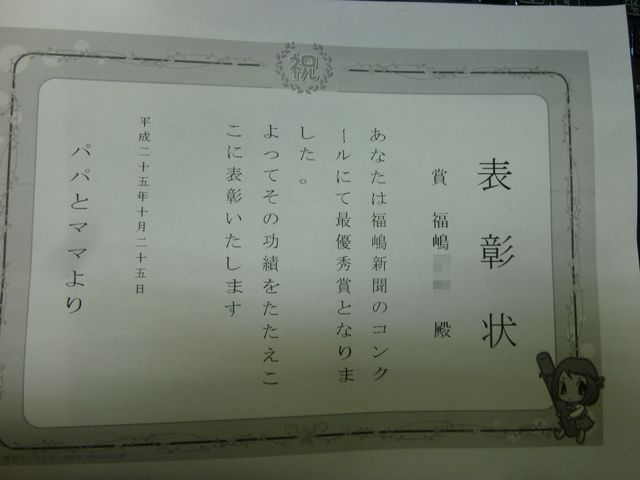 祝
表彰状
賞 福嶋 殿
あなたは福嶋新聞のコンク
ールにて最優秀賞となりま
した。
よってその功績をたたえこ
こに表彰いたします
平成二十五年十月二十五日
パパとママより